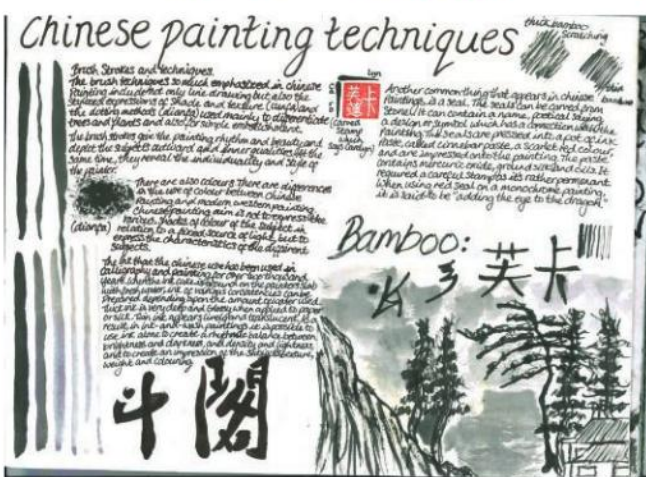 Chinese painting techniques
thick bamboo
scratching
thin
bamboo
Brush Strokes and techniques.
The brush techniques so much emphasized in chinese
Painting include not only line drawing but also the
stylized expressions of shade and texture (cunfa) and
the dotting methods (dianfa) used mainly to differentiate
trees and plants and also for simple embellishment.
The brush strokes give the painting rhythm and beauty and
depict the subjects outward and inner qualities. At the
same time, they reveal the individuality and style of
the painter.
(dianfa)
There are also colours. There are differences
in the use of colour between Chinese
Painting and modern western painting.
Chinese painting aim is not to express the
various shades of colour of the subject in
relation to a fixed source of light, but to
express the characteristics of the different
subjects.
The ink that the chinese use has been used in
calligraphy and painting for over two thousand
years. When the ink cake is ground on the painters slab
with fresh water, ink of various consistencies can be
Prepared depending upon the amount of water used.
Thick ink is very deep and glossy when applied to paper
or silk. Thin ink appears lively and translucent. As a
result, in ink-and-wash paintings it is possible to
use ink alone to create a rhythmic balance between
brightness and darkness, and density and lightness,
and to create an impression of the subjects texture,
weight and colouring.
lyn
芙 卡
蓮
(carved
stamp
which
says carolyn)
Another common thing that appears in chinese
Paintings is a seal. The seals can be carved from
Stone. It can contain a name, poetical saying
a design or symbol which has a connection with the
Painting. The seals are pressed into a pot of ink
Paste, called cinnabar paste, a scarlet red colour,
and are impressed onto the painting. The paste
contains mercuric oxide, ground silk and oils. It
required a careful stamp as its rather permanent.
When using red seal on a monochrome painting,
it is said to be "adding the eye to the dragon".
Bamboo:
芙 卡
斗 閣